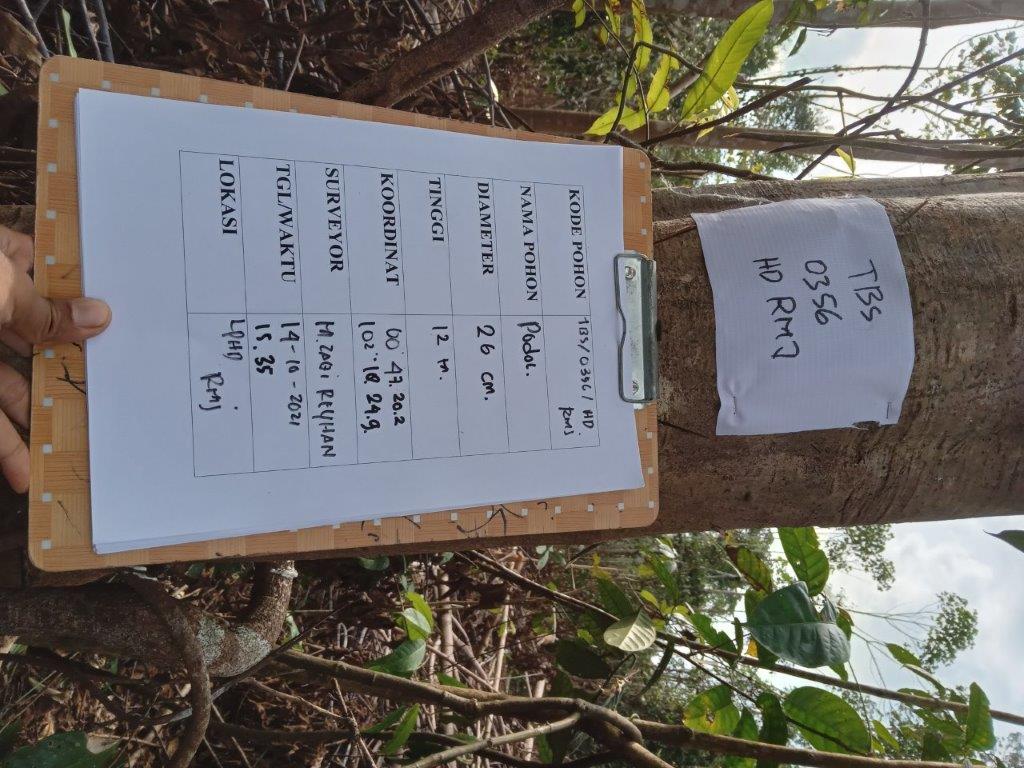 KODE POHON TBS/0356/HD RMJ
NAMA POHON Podol.
DIAMETER 26 cm.
TINGGI 12 m.
KOORDINAT 00°.47.20.2
102°.10.24.9.
SURVEYOR M.ZAQI REYHAN
TGL/WAKTU 19-10-2021
15.35
LOKASI LPHD RMJ
TBS
0356
HD RMJ